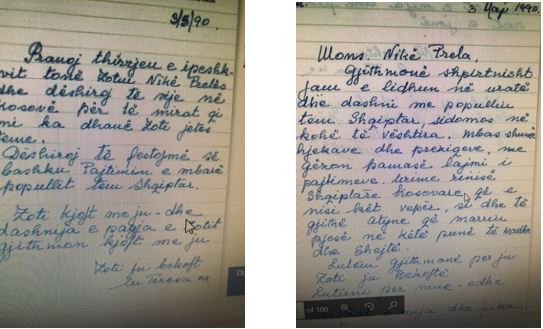 3/5/90.
Pranoj thirrjen e ipeshk-
vit tonë Zotui Nikë Prelës
dhe dëshiroj të vije në
Kosovë për të mirat qi
mi ka dhanë Zoti jetës
teme.
Dëshiroj të festojmë së
bashku Pajtimin e mbarë
popullit tem Shqiptar.
Zoti kjoft me ju-dhe
dashnija e pagja e Zotit
gjithmon kjoft me ju
Zoti ju bekoft
3. Maj 1990.
Mons. Nikë Prela,
Gjithmonë shpirtnisht
jam e lidhun në uratë
dhe dashni me popullin
tem Shqiptar, sidomos në
kohë të vështira. Mbas shumë
hjekave dhe përzigeve, me
gëzon pamasë lajmi i
pajtimeve. Urime rinisë
Shqiptare kosovare që e
nisi kët vepër, si dhe të
gjithë Atyne që marrin
pjesë në këtë punë të madhe
dhe Shejtë.
Lutem gjithmonë për ju.
Zoti ju bekoftë.
Lutuni për mue-edhe
of 100